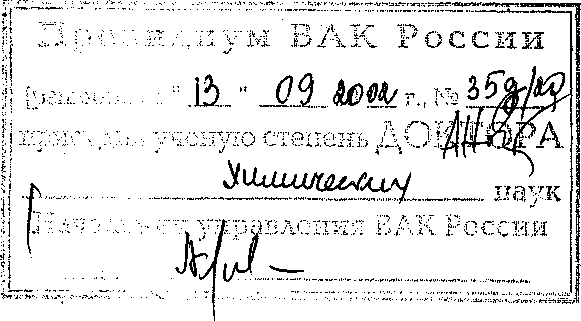 Президиум ВАК России
(решение от " 13 " 09 2002 г., № 35д/
присудил ученую степень ДОКТОРА
химических наук
Начальник управления ВАК России